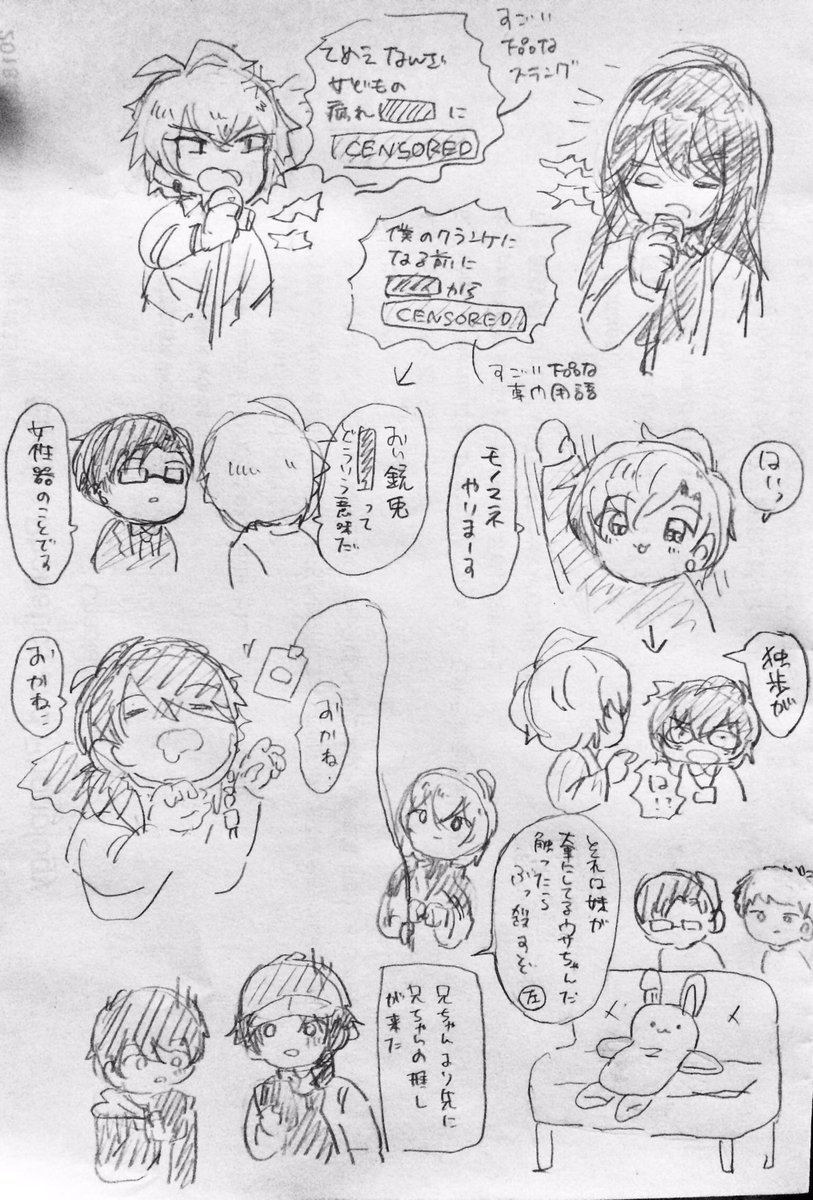 すごい
下品な
スラング
てめえなんざ
女どもの
腐れ に
CENSORED
僕のクランケに
なる前に
から
CENSORED
すごい下品な
専門用語
おい銃兎
って
どういう意味だ
女性器のことです
はいっ
モノマネ
やりまーす
独歩が
は!?
おかね
おかね…
それは妹が
大事にしてるウサちゃんだ
触ったら
ぶっ殺すぞ
左
兄ちゃんより先に
兄ちゃんの推し
が来た